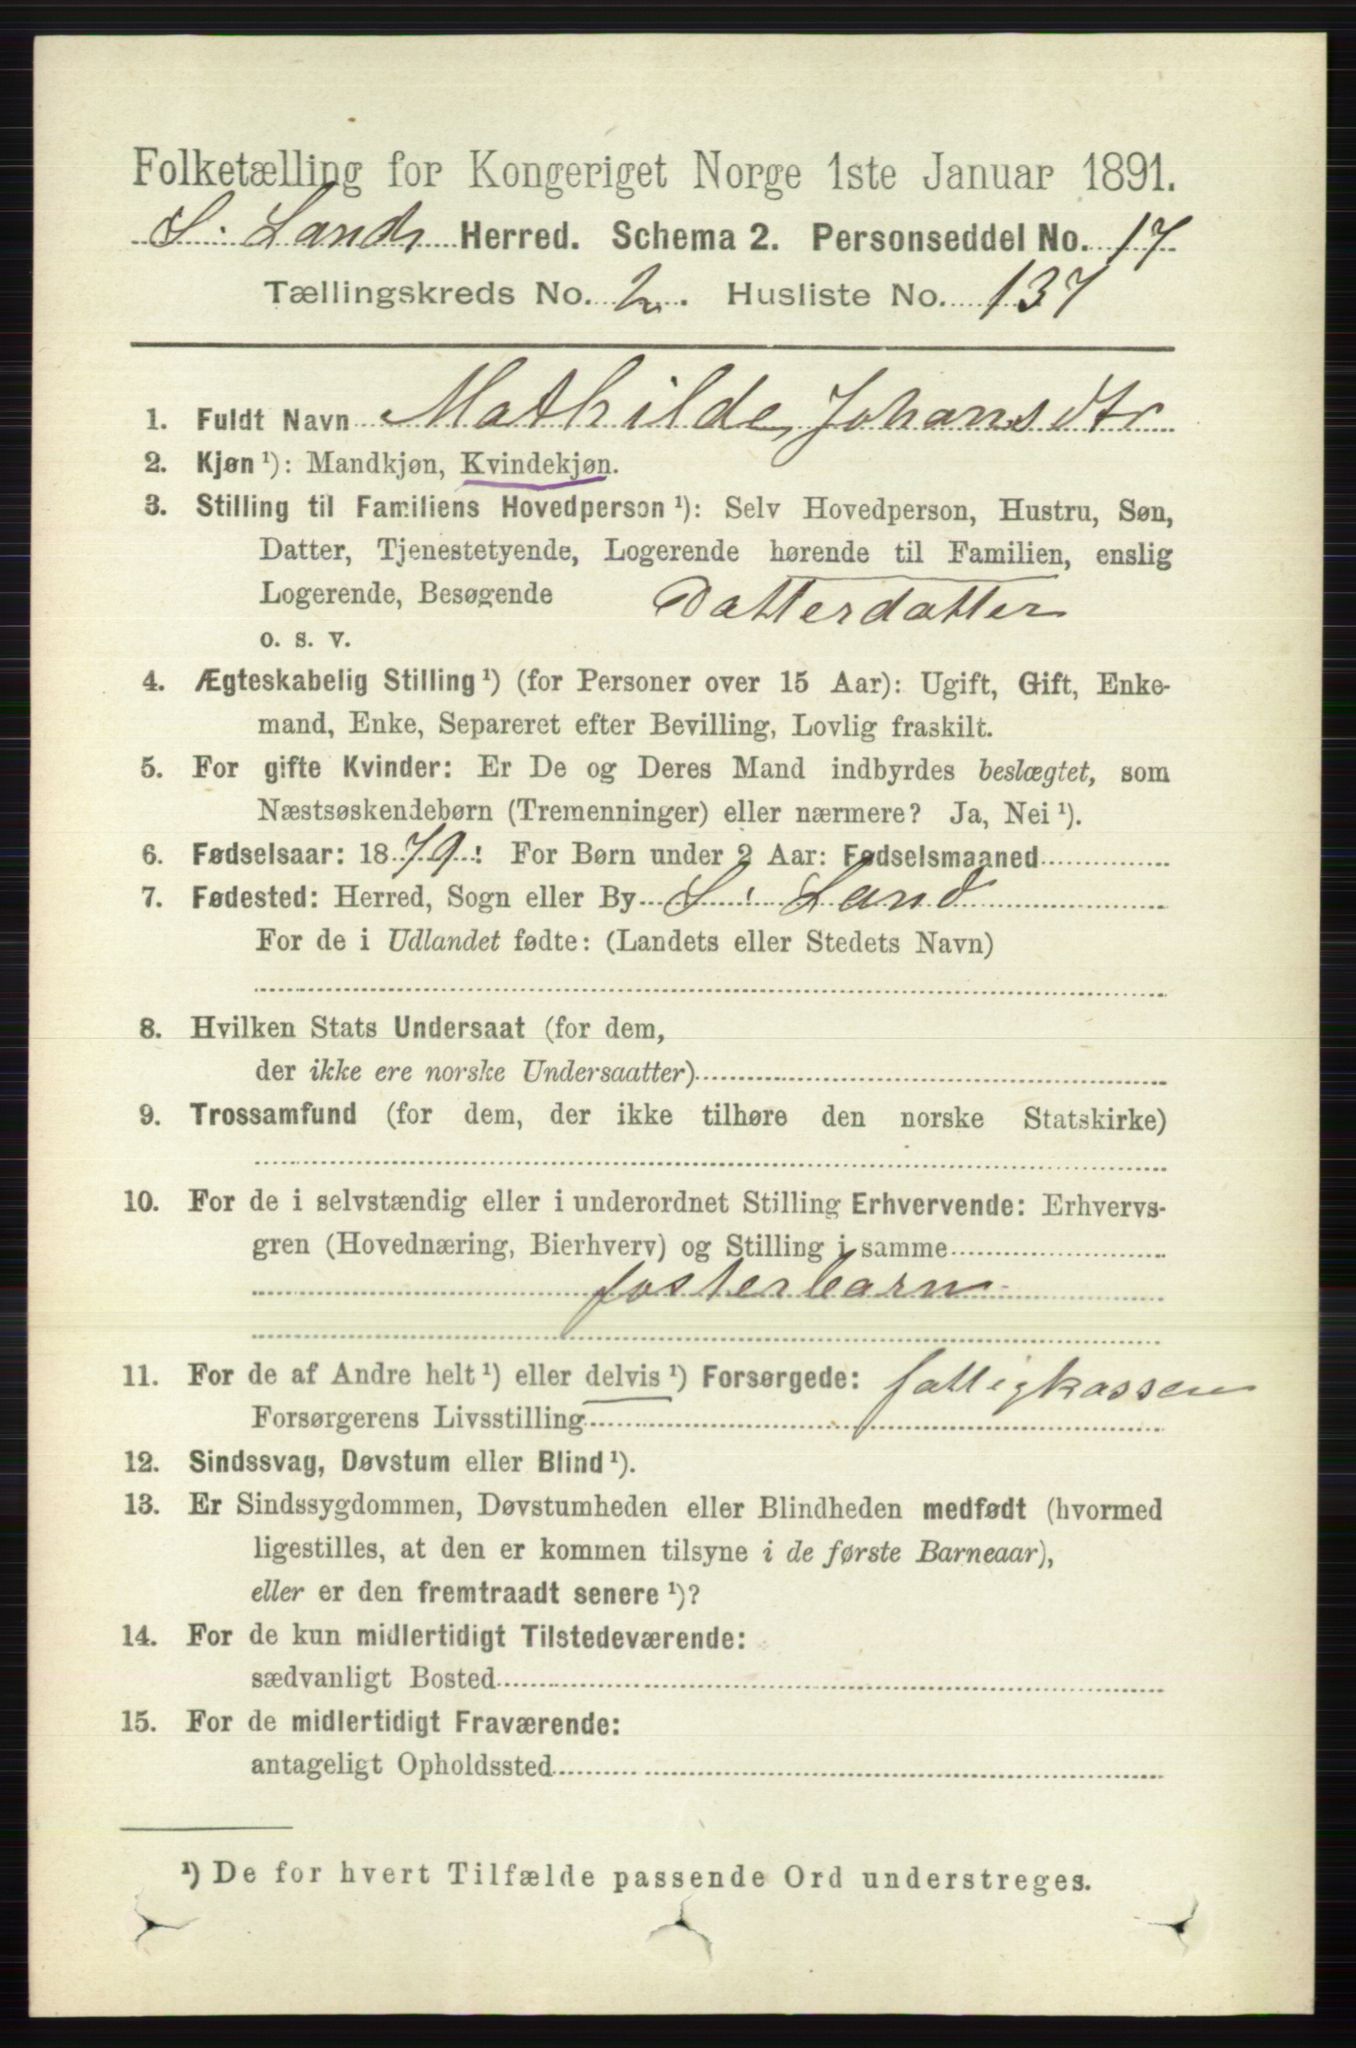 Folketælling for Kongeriget Norge 1ste Januar 1891.
S. Lands Herred. Schema 2. Personseddel No. 17
Tællingskreds No. 2. Husliste No. 137
1. Fuldt Navn Mathilde Johansdtr
2. Kjøn ¹): Mandkjøn, Kvindekjøn.
3. Stilling til Familiens Hovedperson ¹): Selv Hovedperson, Hustru, Søn,
Datter, Tjenestetyende, Logerende hørende til Familien, enslig
Logerende, Besøgende Datterdatter
o. s. v.
4. Ægteskabelig Stilling ¹) (for Personer over 15 Aar): Ugift, Gift, Enke-
mand, Enke, Separeret efter Bevilling, Lovlig fraskilt.
5. For gifte Kvinder: Er De og Deres Mand indbyrdes beslægtet, som
Næstsøskendebørn (Tremenninger) eller nærmere? Ja, Nei ¹).
6. Fødselsaar: 1879. For Børn under 2 Aar: Fødselsmaaned
7. Fødested: Herred, Sogn eller By S. Land
For de i Udlandet fødte: (Landets eller Stedets Navn)
8. Hvilken Stats Undersaat (for dem,
der ikke ere norske Undersaatter)
9. Trossamfund (for dem, der ikke tilhøre den norske Statskirke)
10. For de i selvstændig eller i underordnet Stilling Erhvervende: Erhvervs-
gren (Hovednæring, Bierhverv) og Stilling i samme
fosterbarn
11. For de af Andre helt ¹) eller delvis ¹) Forsørgede: fattigkassen
Forsørgerens Livsstilling
12. Sindssvag, Døvstum eller Blind ¹).
13. Er Sindssygdommen, Døvstumheden eller Blindheden medfødt (hvormed
ligestilles, at den er kommen tilsyne i de første Barneaar),
eller er den fremtraadt senere ¹)?
14. For de kun midlertidigt Tilstedeværende:
sædvanligt Bosted
15. For de midlertidigt Fraværende:
antageligt Opholdssted
¹) De for hvert Tilfælde passende Ord understreges.